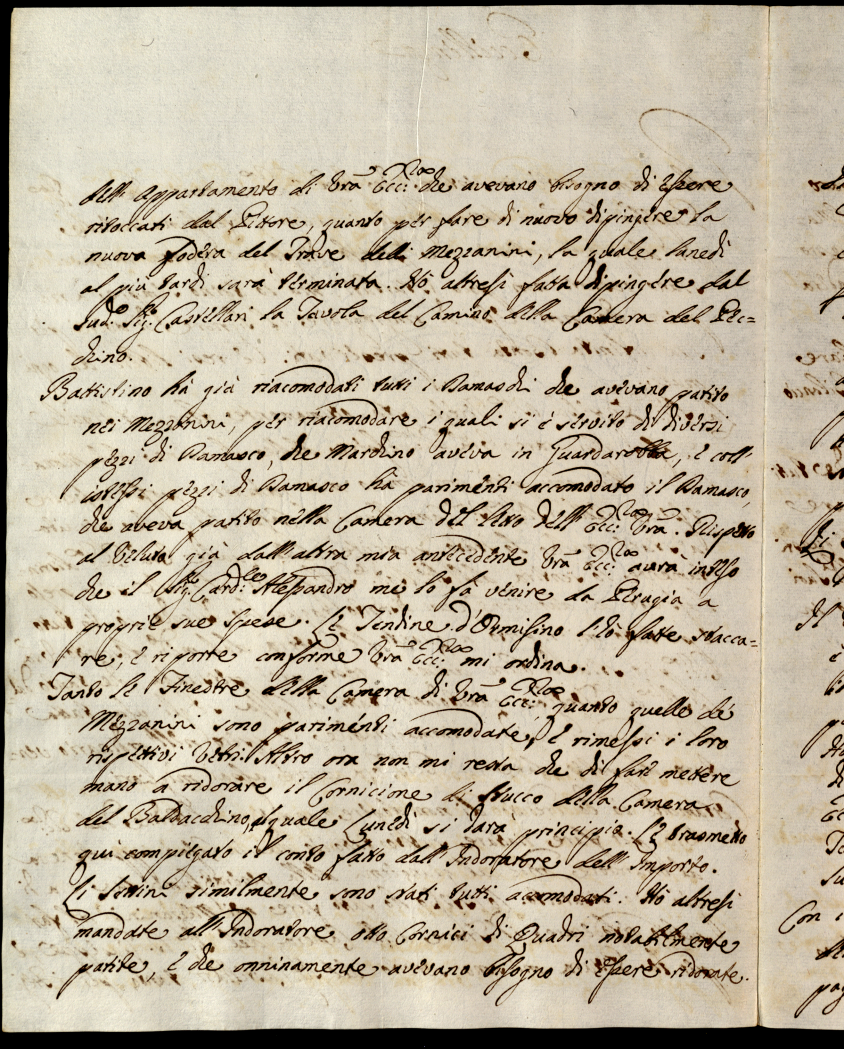 dell'Appartamento di Vrã Ecc:za che avevano bisogno di essere
ritoccati dal Pittore, quanto per fare di nuovo dipingere la
nuova fodera del Trave delli Mezzanini, la quale lunedì
al più tardi sarà terminata. Hò altresì fatta dipingere dal
sud.o Sig.e Castellari la Tavola del Camino della Camera del Lec=
chino.
Battistino hà già riacomodati tutti i Damaschi che avevano patito
nei Mezzanini, per riacomodare i quali si è servito di diversi
pezzi di Damasco, che Marchino aveva in Guardarobba, e coll'
istessi pezzi di Damasco hà parimenti accomodato il Damasco,
che aveva patito nella Camera del Letto dell'Ecc:za Vrã. Rispetto
al Veluto già dall'altra mia antecedente Vrã Ecc:za avrà inteso
che il Sig.e Card.le Alessandro me lo fà venire da Perugia a
proprie sue spese. Le Tendine d'Ormisino l'hò fatte stacca=
re, e riporre conforme Vrã Ecc:za mi ordina.
Tanto le Finestre della Camera di Vrã Ecc:za, quanto quelle de'
Mezzanini sono parimenti accomodate, e rimessi i loro
rispettivi Vetri. Altro ora non mi resta che di fare mettere
mano a ridorare il Cornicione di Stucco della Camera
del Baldacchino, al quale Lunedì si darà principio. Le trasmetto
qui compiegato il conto fatto dall'Indoratore dell'Importo.
Li similmente sono stati tutti acomodati. Hò altresì
mandate all'Indoratore otto Cornici di Quadri notabilmente
patite, e che onninamente avevano bisogno di essere ridorate.